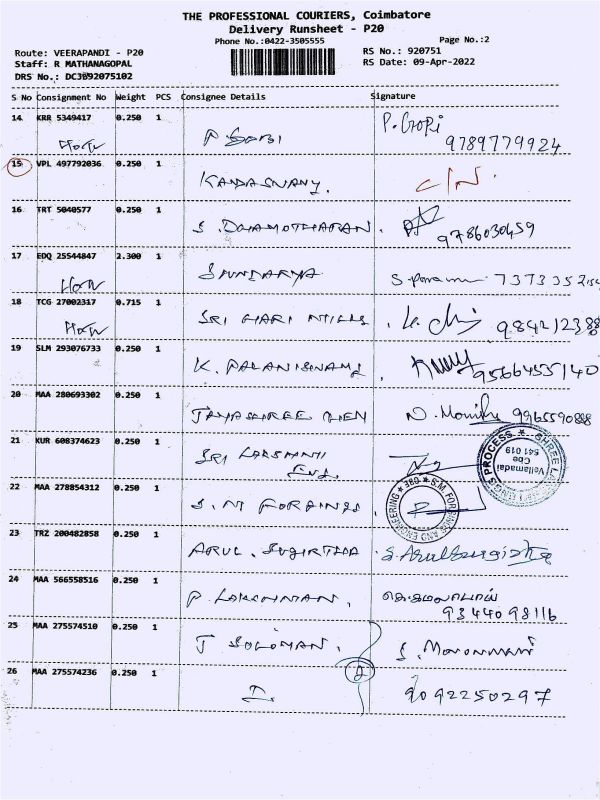 THE PROFESSIONAL COURIERS, Coimbatore
Delivery Runsheet - P20
Phone No.:0422-3505555
Page No.:2
Route: VEERAPANDI - P20
RS No.: 920751
Staff: R MATHANAGOPAL
RS Date: 09-Apr-2022
DRS No.: DC3092075102
S No Consignment No Weight PCS Consignee Details Signature
14 KRR 5349417 0.250 1 P. Gopi
9789779924
15 VPL 497792036 0.250 1 KANDASWAMY. C/N.
16 TRT 5040577 0.250 1 S. DHAMOTHARAN. 9786030459
17 EDQ 25544847 2.300 1 SOUNDARYA
18 TCG 27002317 0.715 1 SRI HARI MILLS
19 SLM 293076733 0.250 1 K. PALANISWAMY 9566455140
20 MAA 280693302 0.250 1 JAYASHREE
21 KUR 608374623 0.250 1 SRI LAKSHMI
22 MAA 278854312 0.250 1 S.M FORGINGS
S.M. FORGINGS AND ENGINEERING
23 TRZ 200482858 0.250 1 ARUL. SUGIRTHA
24 MAA 566558516 0.250 1 P. LAKSHMANAN. கெ.கமலாபாய்
9344098116
25 MAA 275574510 0.250 1 J SOLOMAN.
2
26 MAA 275574236 0.250 1 9092250297